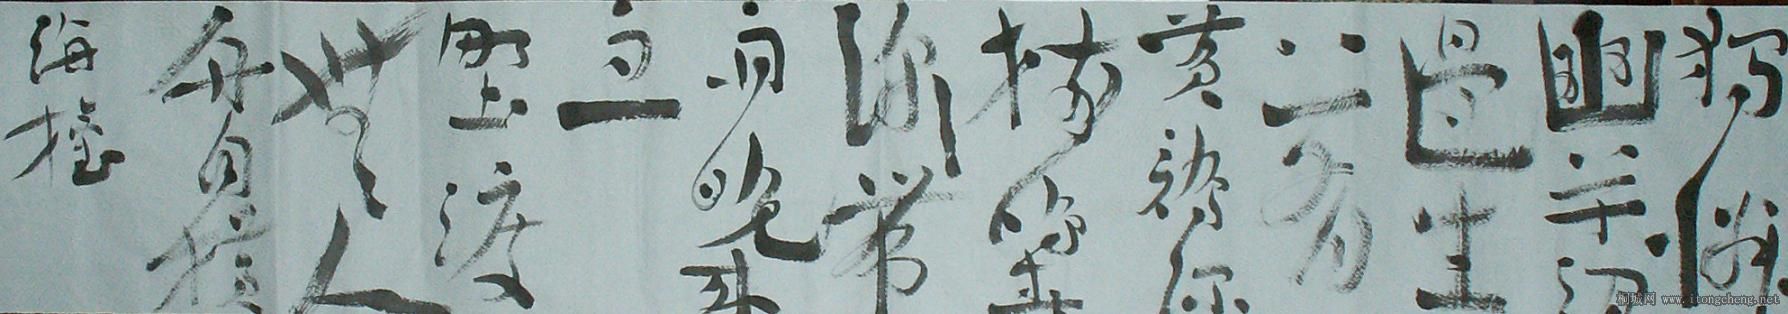 独怜
幽草涧
边生
上有
黄鹂深
树鸣春
潮带
雨晚来
急
野渡
无人
舟自横
海
桐城网 www.itongcheng.net